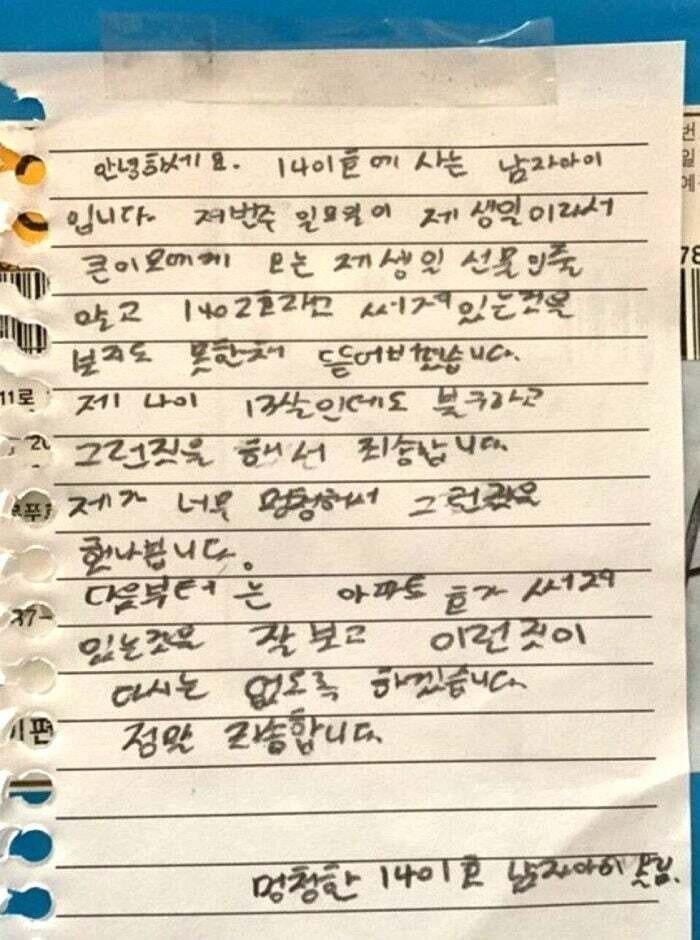 안녕하세요. 1401호에 사는 남자아이
입니다. 저번주 일요일이 제 생일이라서
큰이모에게 오는 제 생일 선물인줄
알고 1402호라고 써져있는것을
보지도 못한채 뜯어버렸습니다.
제 나이 13살인데도 불구하고
그런짓을 해서 죄송합니다.
제가 너무 멍청해서 그런
다음부터는 아파트 호가 써져
있는것을 잘 보고 이런짓이
다시는 없도록 하겠습니다.
정말 죄송합니다.
멍청한 1401호 남자아이 올림.
11로
37-
기편
번
일
예
78